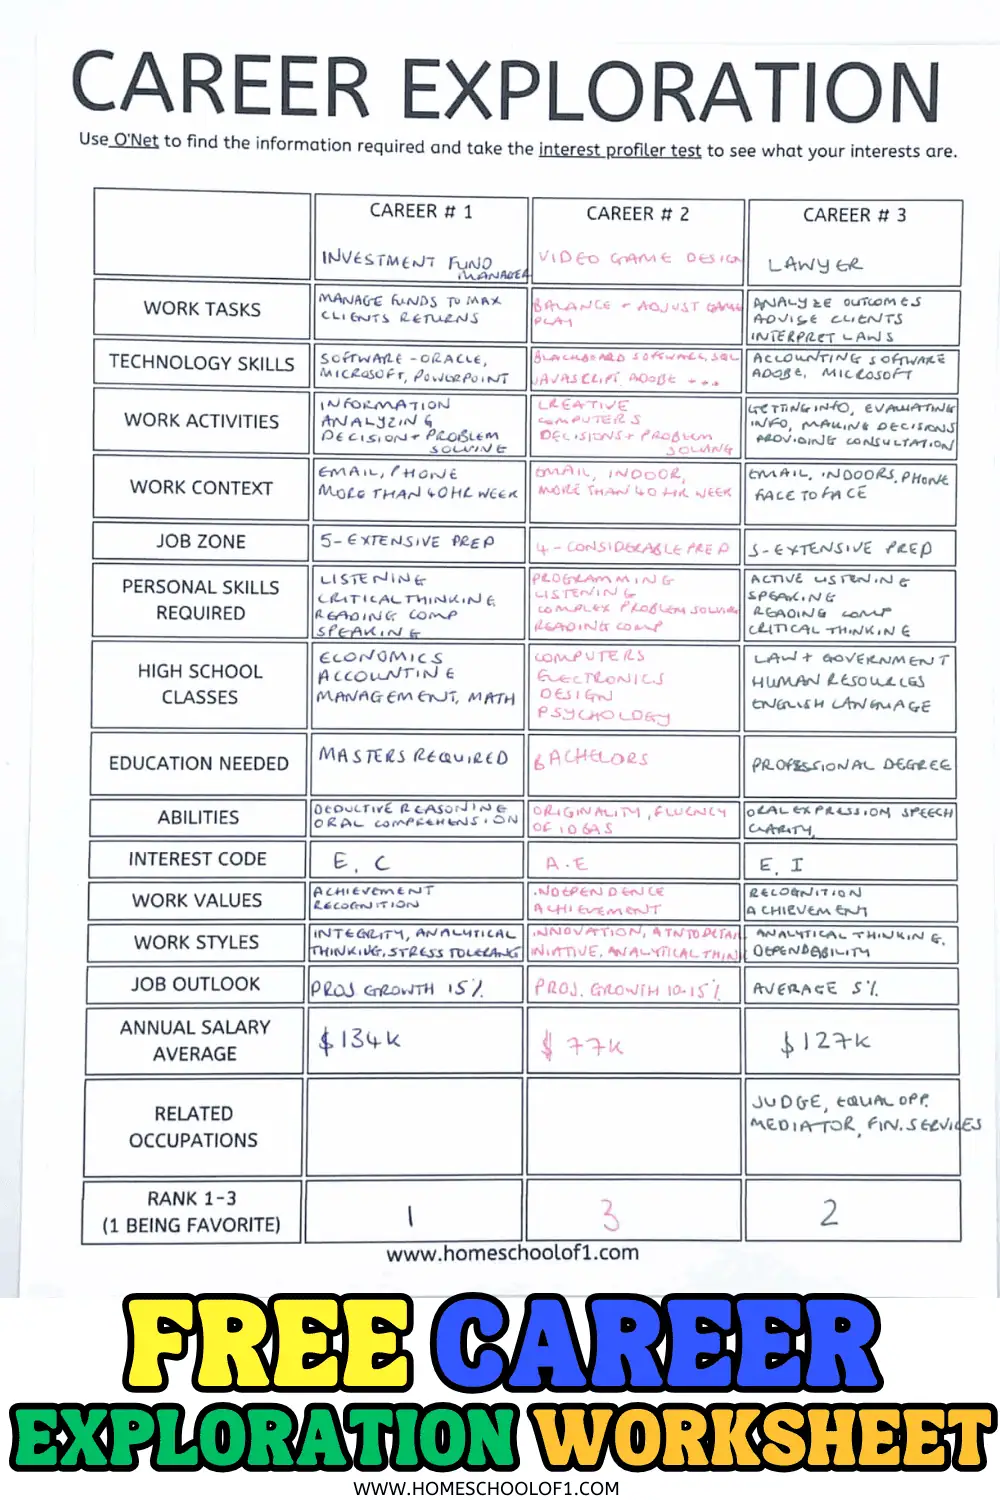 CAREER EXPLORATION
Use O'Net to find the information required and take the interest profiler test to see what your interests are.
CAREER # 1
INVESTMENT FUND
MANAGER
CAREER # 2
VIDEO GAME DESIGN
CAREER # 3
LAWYER
WORK TASKS
MANAGE FUNDS TO MAX
CLIENTS RETURNS
BALANCE + ADJUST GAME
PLAY
ANALYZE OUTCOMES
ADVISE CLIENTS
INTERPRET LAWS
TECHNOLOGY SKILLS
SOFTWARE - ORACLE,
MICROSOFT, POWERPOINT
BLACKBOARD SOFTWARE, SQL
JAVASCRIPT, ADOBE + ...
ACCOUNTING SOFTWARE
ADOBE, MICROSOFT
WORK ACTIVITIES
INFORMATION
ANALYZING
DECISION + PROBLEM
SOLVING
CREATIVE
COMPUTERS
DECISIONS + PROBLEM
SOLVING
GETTING INFO, EVALUATING
INFO, MAKING DECISIONS
PROVIDING CONSULTATION
WORK CONTEXT
EMAIL, PHONE
MORE THAN 40HR WEEK
EMAIL, INDOOR,
MORE THAN 40 HR WEEK
EMAIL, INDOORS, PHONE
FACE TO FACE
JOB ZONE
5 - EXTENSIVE PREP
4 - CONSIDERABLE PREP
5 - EXTENSIVE PREP
PERSONAL SKILLS
REQUIRED
LISTENING
CRITICAL THINKING
READING COMP
SPEAKING
PROGRAMMING
LISTENING
COMPLEX PROBLEM SOLVING
READING COMP
ACTIVE LISTENING
SPEAKING
READING COMP
CRITICAL THINKING
HIGH SCHOOL
CLASSES
ECONOMICS
ACCOUNTING
MANAGEMENT, MATH
COMPUTERS
ELECTRONICS
DESIGN
PSYCHOLOGY
LAW + GOVERNMENT
HUMAN RESOURCES
ENGLISH LANGUAGE
EDUCATION NEEDED
MASTERS REQUIRED
BACHELORS
PROFESSIONAL DEGREE
ABILITIES
DEDUCTIVE REASONING
ORAL COMPREHENSION
ORIGINALITY, FLUENCY
OF IDEAS
ORAL EXPRESSION, SPEECH
CLARITY,
INTEREST CODE
E, C
A.E
E, I
WORK VALUES
ACHIEVEMENT
RECOGNITION
INDEPENDENCE
ACHIEVEMENT
RECOGNITION
ACHIEVEMENT
WORK STYLES
INTEGRITY, ANALYTICAL
THINKING, STRESS TOLERANC
INNOVATION, ATN TO DETAIL
INIATIVE, ANALYTICAL THIN
ANALYTICAL THINKING,
DEPENDABILITY
JOB OUTLOOK
PROJ. GROWTH 15%
PROJ. GROWTH 10-15%
AVERAGE 5%
ANNUAL SALARY
AVERAGE
$134K
$ 77K
$127K
RELATED
OCCUPATIONS
JUDGE, EQUAL OPP.
MEDIATOR, FIN. SERVICES
RANK 1-3
(1 BEING FAVORITE)
1
3
2
www.homeschoolof1.com
FREE CAREER
EXPLORATION WORKSHEET
WWW.HOMESCHOOLOF1.COM